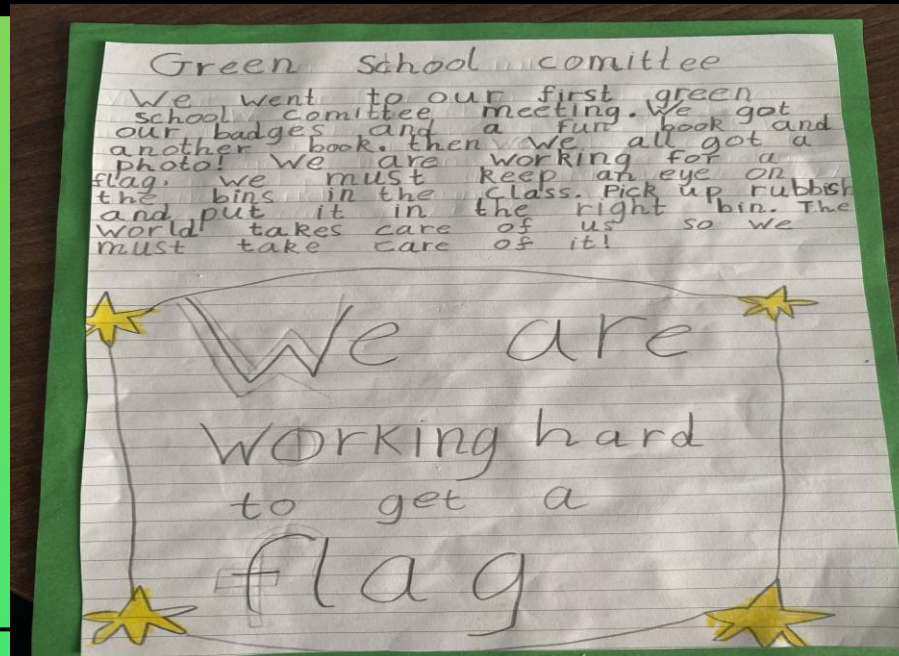 Green School comittee
We went to our first green
school comittee meeting. We got
our badges and a fun book and
another book. then we all got a
photo! We are working for a
flag. We must keep an eye on
the bins in the class. Pick up rubbish
and put it in the right bin. The
world takes care of us so we
must take care of it!
We are
working hard
to get a
flag